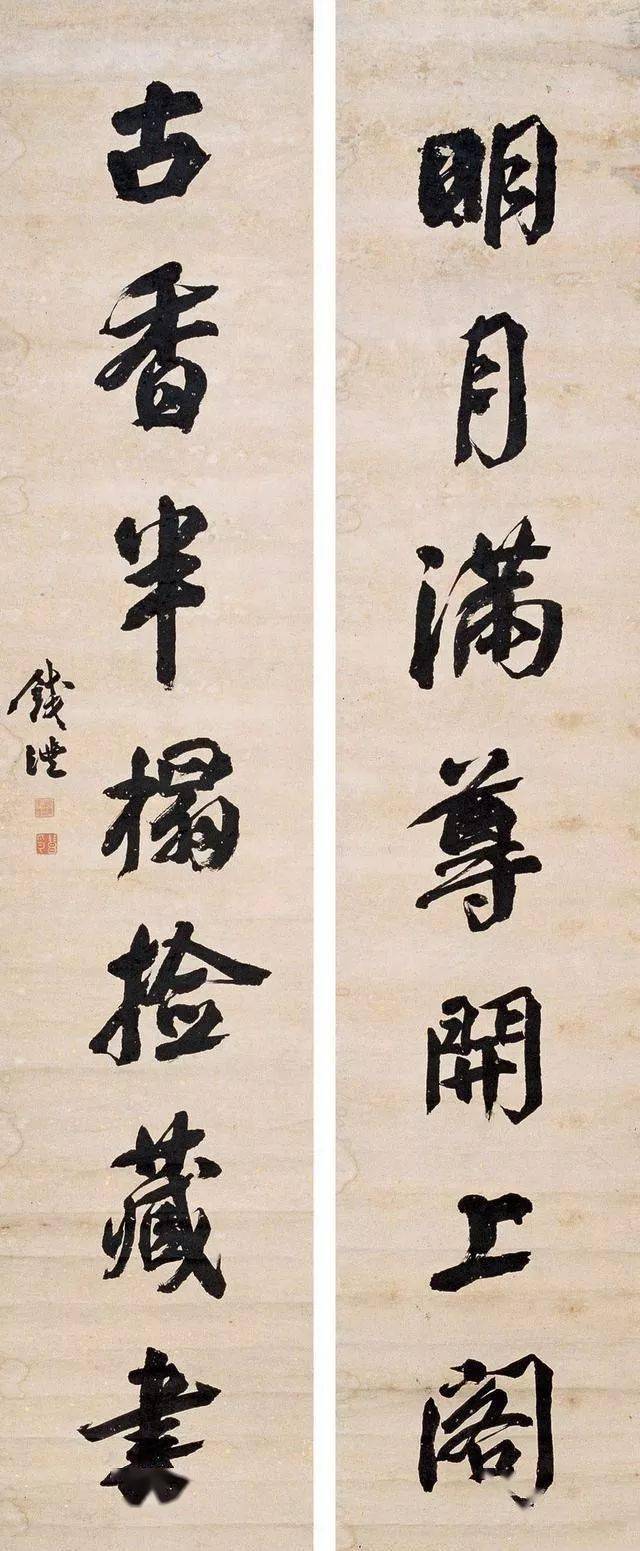 明月满尊開上阁
古香半榻捡藏書
錢灃